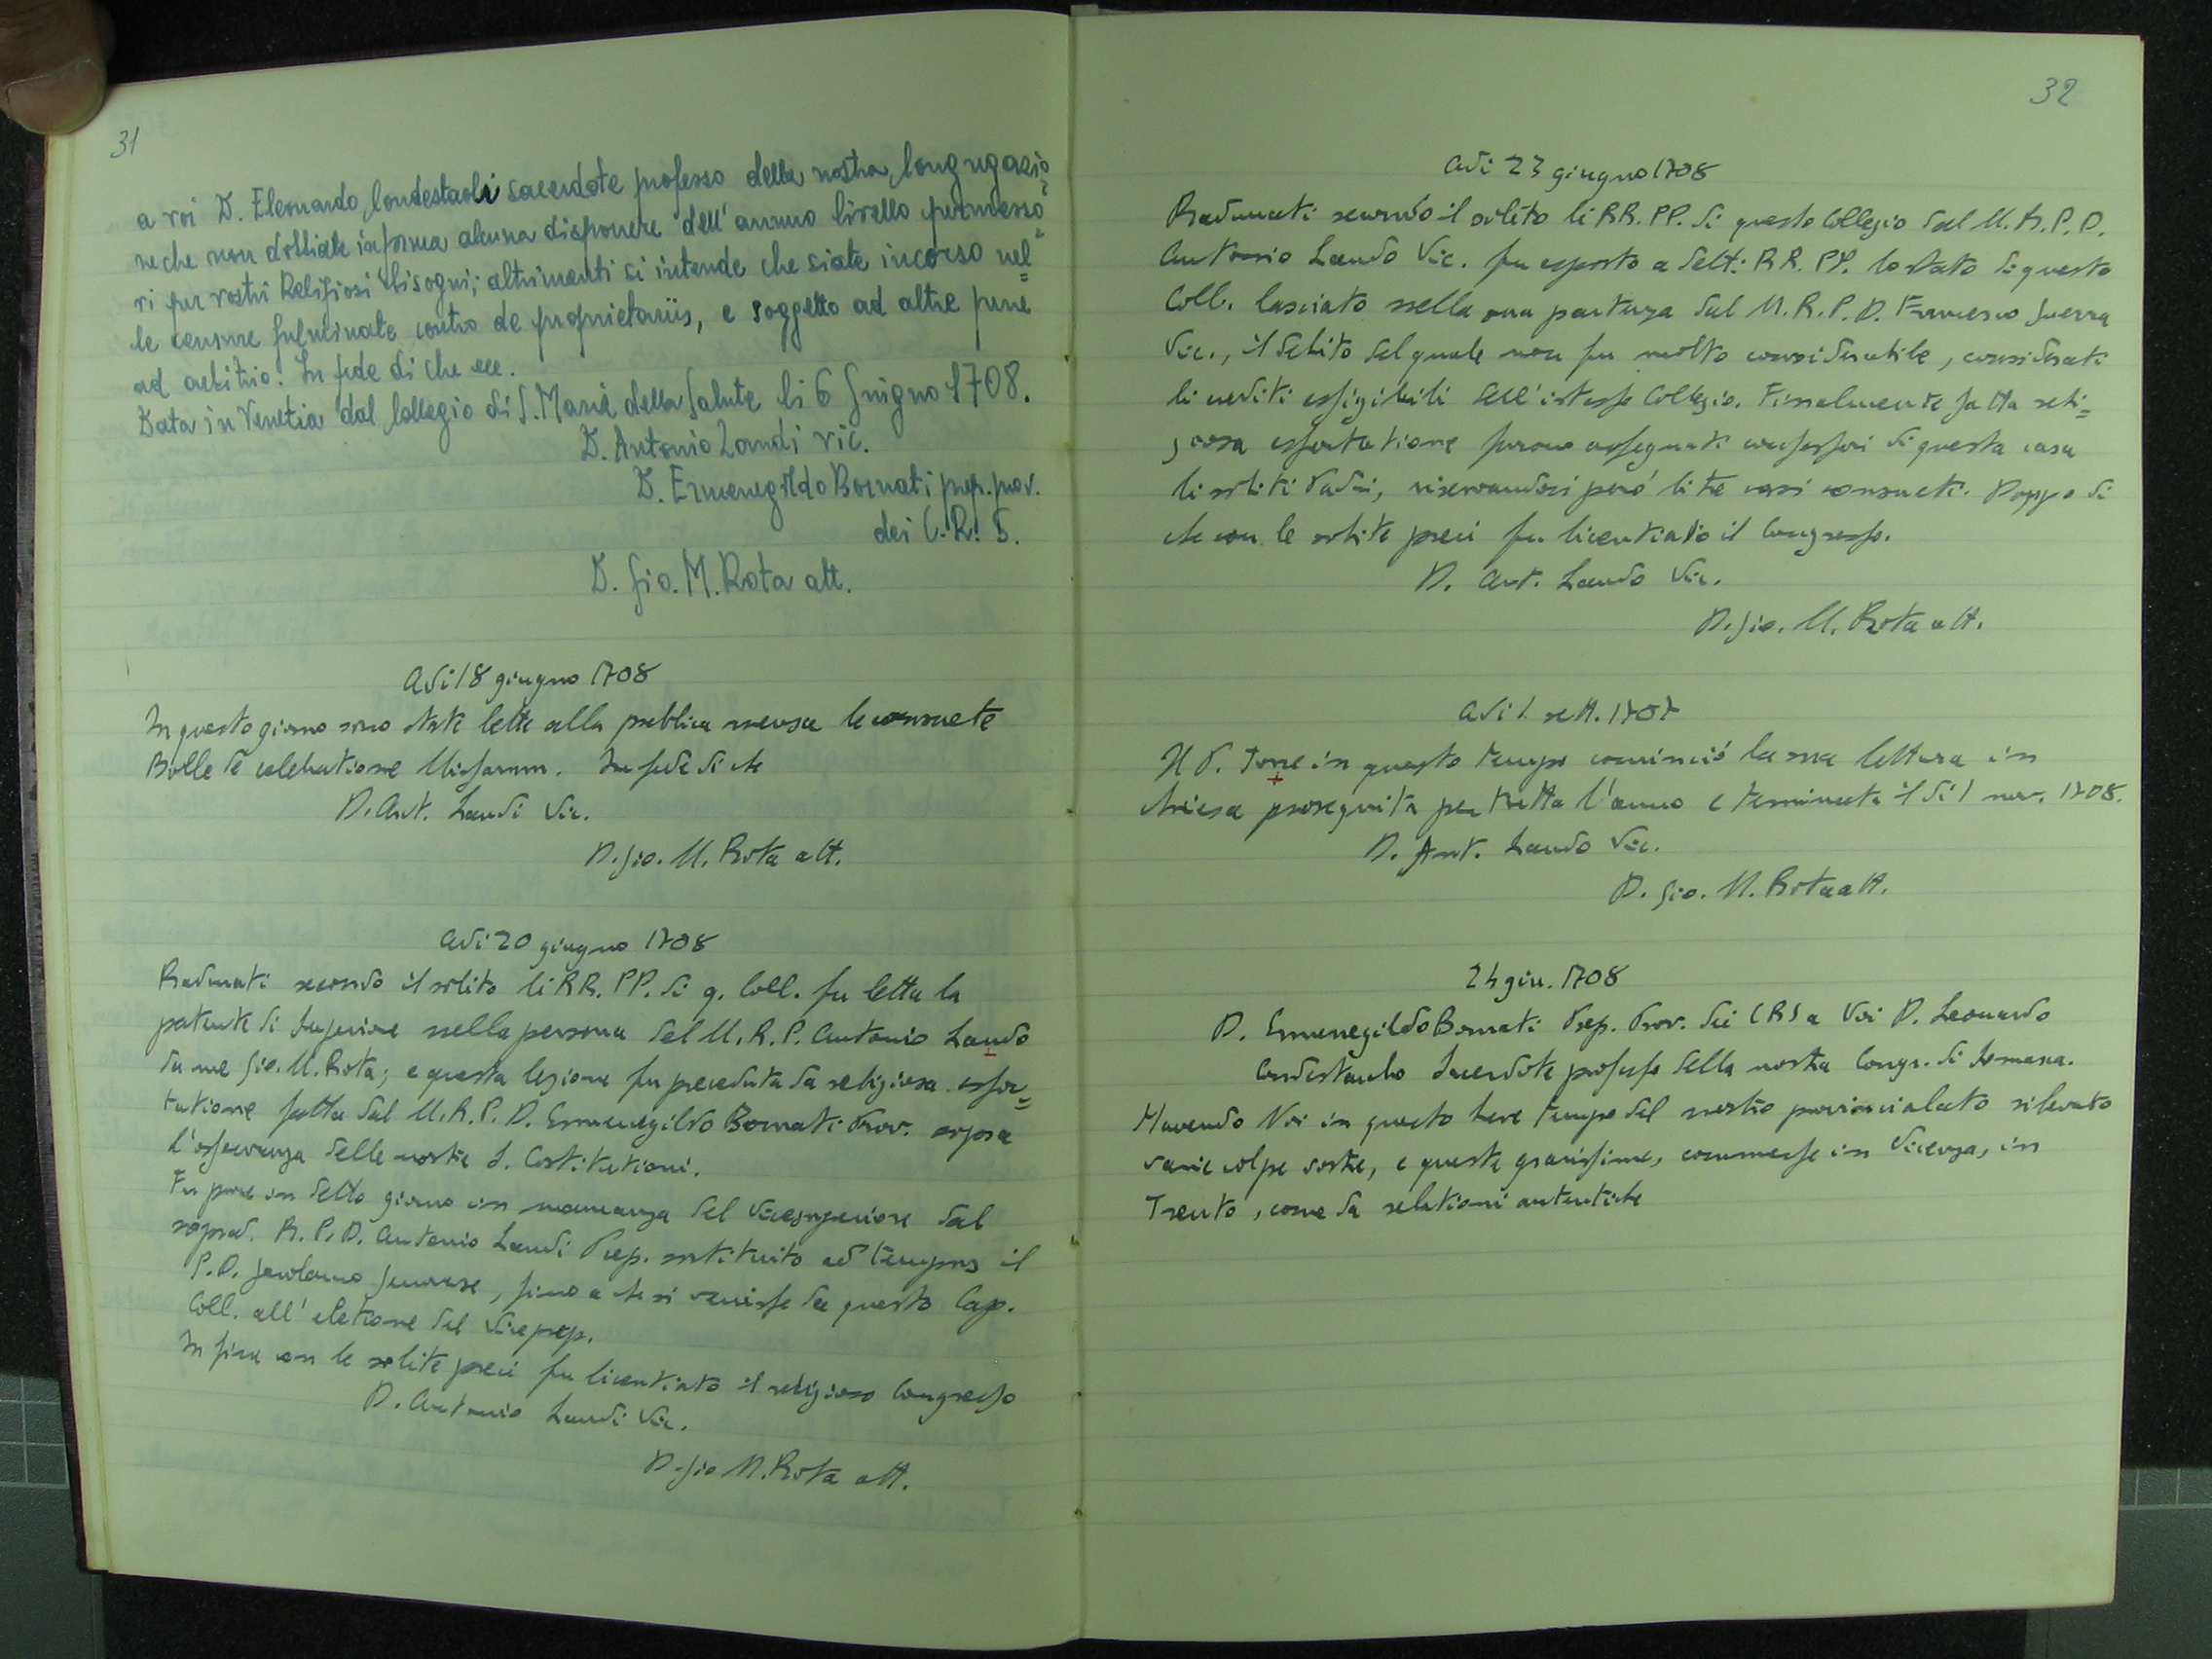 31
a voi D. Eleonardo Condestaoli sacerdote professo della nostra Congregazio=
ne che non dobbiate in forma alcuna disponere dell'annuo livello permesso=
vi per vostri Religiosi bisogni; altrimenti si intende che siate incorso nel=
le censure fulminate contro de proprietariis, e soggetto ad altre pene
ad arbitrio. In fede di che ecc.
Data in Venetia dal Collegio di S. Maria della Salute li 6 Giugno 1708.
D. Antonio Landi vic.
D. Ermenegildo Bornati prep. prov.
dei C. R. S.
D. Gio. M. Rota att.
Adi 18 giugno 1708
In questo giorno sono state lette alla publica mensa le consuete
Bolle de celebratione Missarum. In fede di che
D. Ant. Landi Vic.
D. Gio. M. Rota att.
Adi 20 giugno 1708
Radunati secondo il solito li RR. PP. di q. Coll. fu letta la
patente di Superiore nella persona del M. R. P. Antonio Lando
da me Gio. M. Rota; e questa lezione fu preceduta da religiosa essor=
tatione fatta dal M. R. P. D. Ermenegildo Bornati Prov. sopra
l'osservanza delle nostre S. Costitutioni.
Fu pure in detto giorno in mancanza del Vicesuperiore dal
soprad. R. P. D. Antonio Landi Prep. sostituito ad tempus il
P. D. Gerolamo, fino a che si venisse da questo Cap.
Coll. all'eletione del Viceprep.
In fine con le solite preci fu licentiato il religioso Congresso
D. Antonio Landi Vic.
D. Gio M. Rota att.
32
Adi 23 giugno 1708
Radunati secondo il solito li RR. PP. di questo Collegio dal M. R. P. D.
Antonio Lando Vic. fu esposto a detti RR. PP. lo stato di questo
Coll. lasciato nella sua partenza dal M. R. P. D. Francesco Guerra
Vic., il debito del quale non fu molto considerabile, considerati
li crediti essigibili dell'istesso Collegio. Finalmente fatta reli=
giosa essortatione furono assegnati confessori di questa casa
li soliti Padri, riservandosi però li tre casi consueti. Doppo di
che con le solite preci fu licentiato il Congresso.
D. Ant. Lando Vic.
D. Gio. M. Rota att.
Adi 1 sett. 1707
Il P. Torre in questo tempo cominciò la sua lettura in
chiesa proseguita per tutta l'anno e terminata il di 1 nov. 1708.
D. Ant. Lando Vic.
D. Gio. M. Rota att.
24 giu. 1708
D. Ermenegildo Bornati Prep. Prov. dei CRS a Voi D. Leonardo
Condestaulo Sacerdote professo della nostra Congr. di Somasca.
Havendo Noi in questo breve tempo del nostro provincialato rilevato
varie colpe vostre, e queste gravissime, commesse in Vicenza, in
Trento, come da relationi autentiche